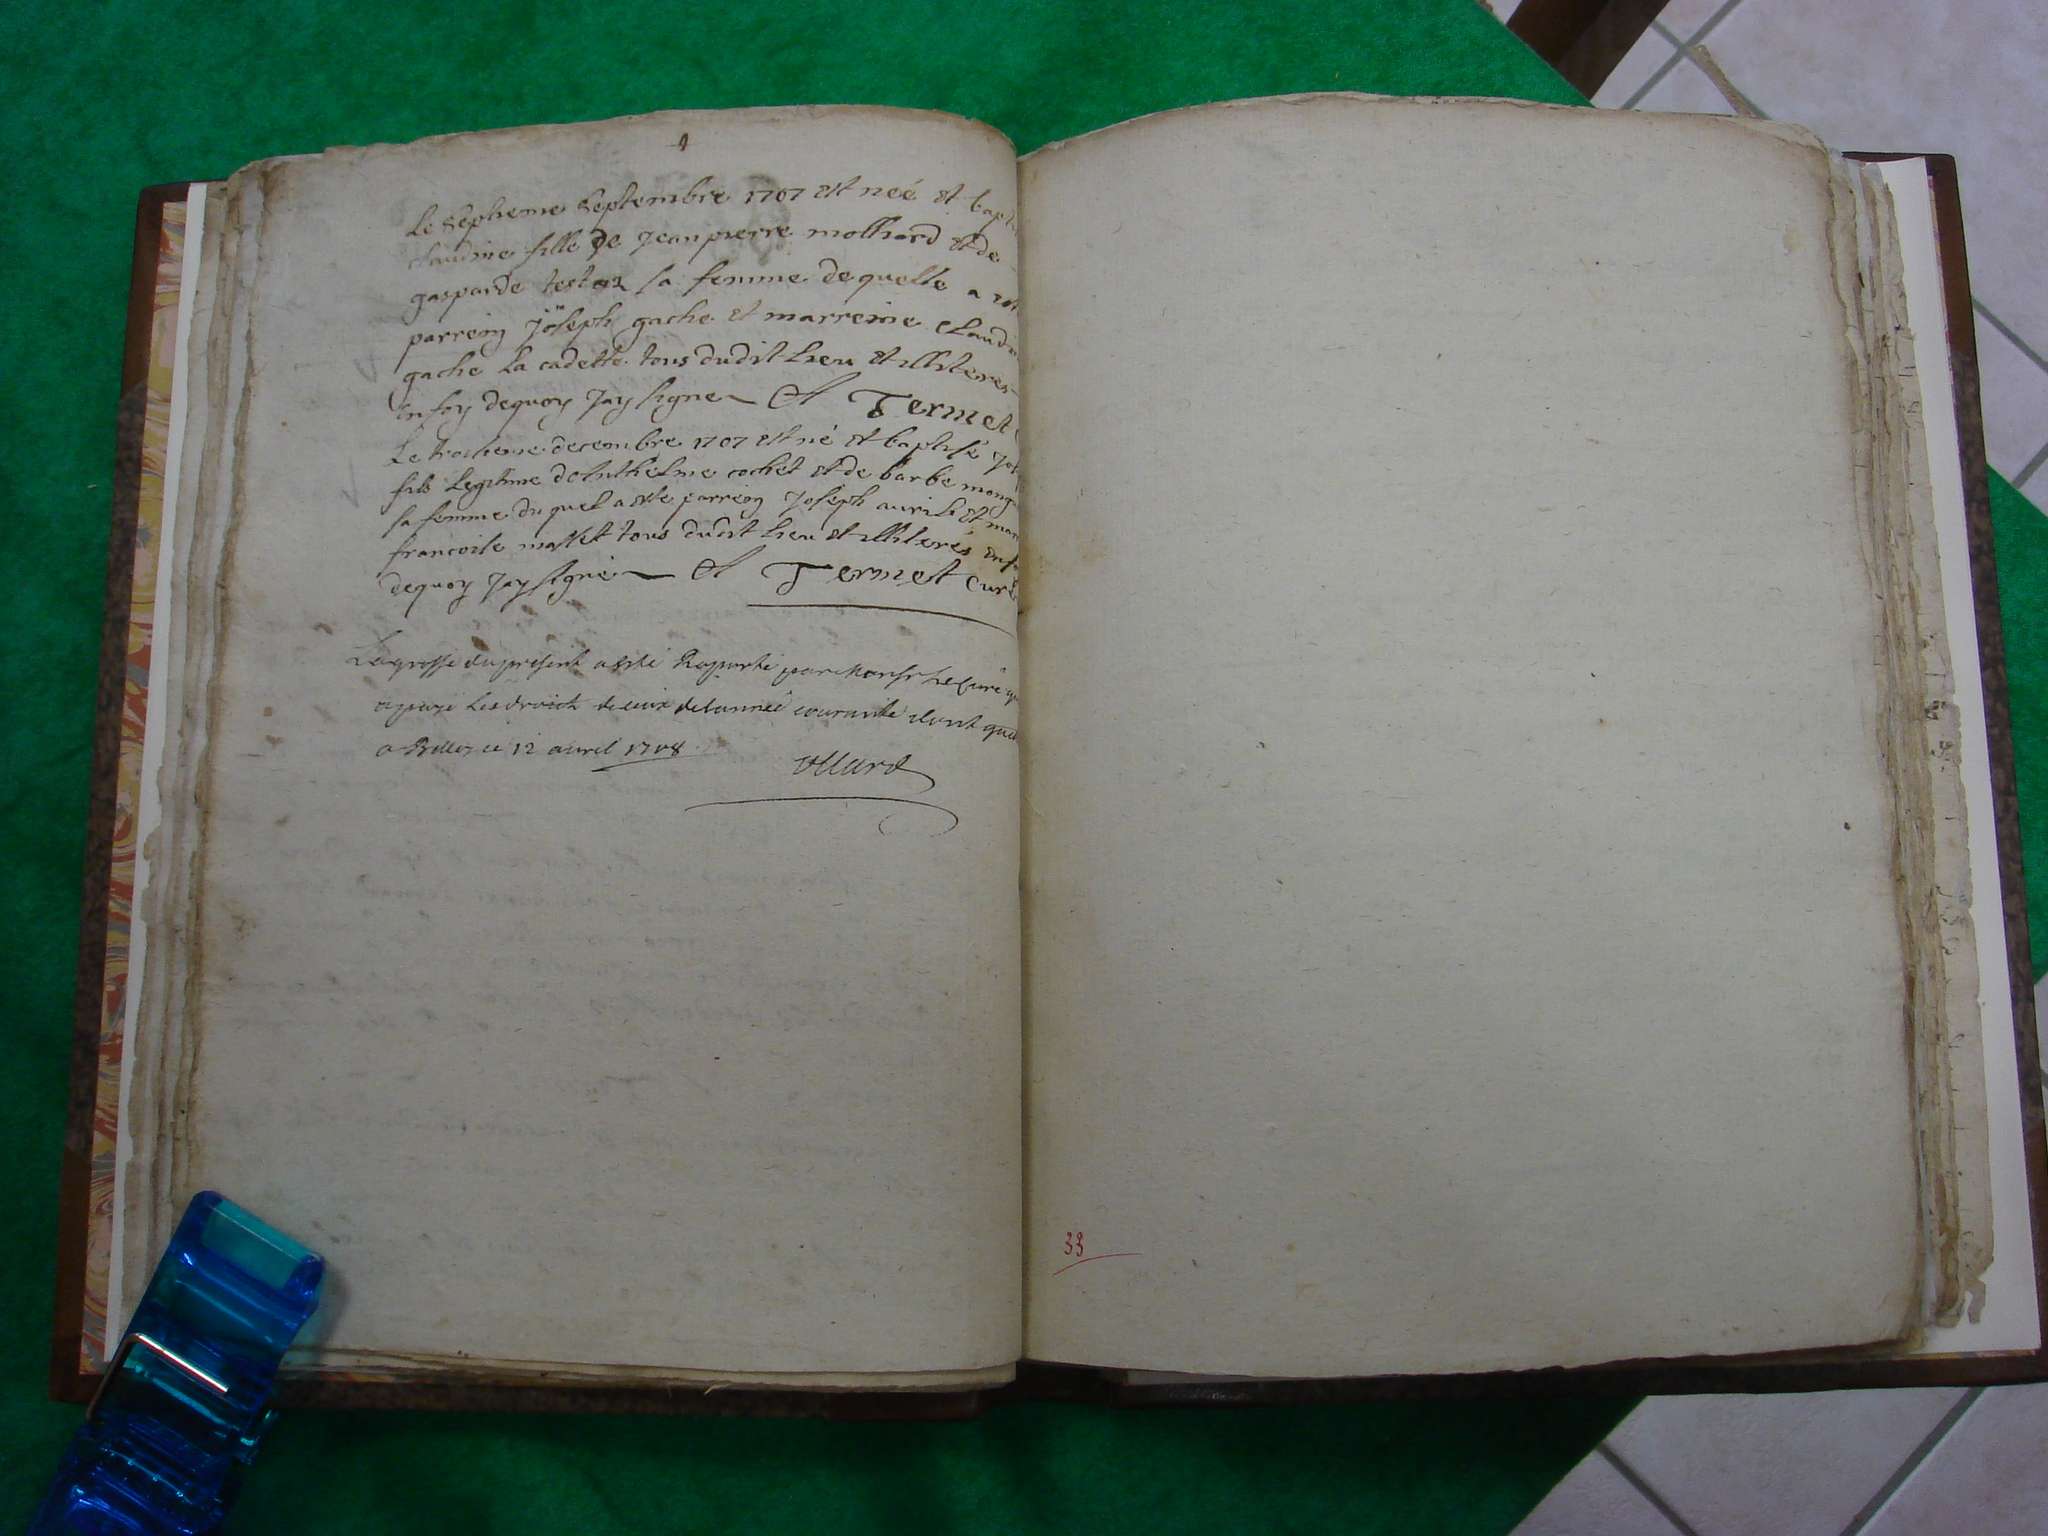 Le septieme septembre 1707 est neé et bapt
claudine fille de Jean pierre molliard et de
gasparde testaz sa femme de quelle a
parrein Joseph gache et marreine Claud
gache La cadette tous dudit Lieu et illiteres
En foy dequoy Jay signe Termet
Le troisieme decembre 1707 est né et baptisé
fils Legitime dAnthelme cochet et de barbe
sa femme du quel a este parrein Joseph et
francoise mallet tous dudit Lieu et illiterés
dequoy Jay signé Termet Curé
La grosse du present a esté Raporté par Monsr Le Curé
a payé Les droicts de ceux de l'année courante dont
a Belley ce 12 avril 1708
33